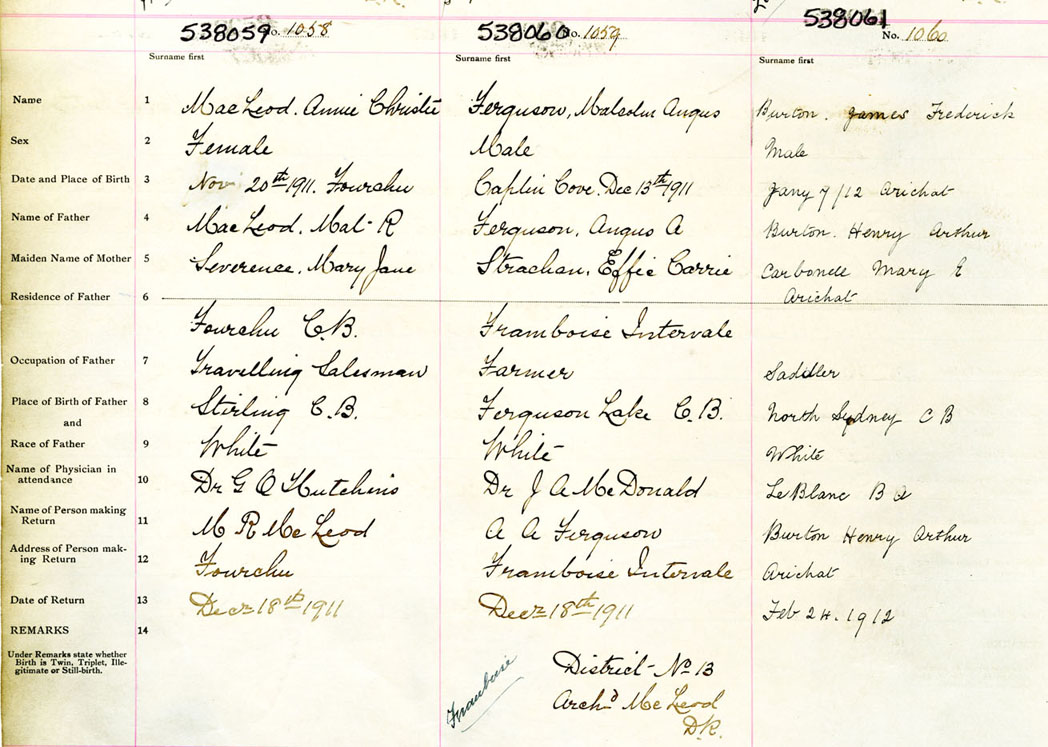 538059 No. 1058 538060 No. 1059 538061 No. 1060
Surname first Surname first Surname first
Name 1 MacLeod. Annie Christie Ferguson, Malcolm Angus Burton. James Frederick
Sex 2 Female Male Male
Date and Place of Birth 3 Nov 20th 1911. Fourchu Caplin Cove. Dec 13th 1911 Jany 7/12 Arichat
Name of Father 4 MacLeod. Mal- R Ferguson, Angus A Burton. Henry Arthur
Maiden Name of Mother 5 Severence. Mary Jane Strachan, Effie Carrie Carbonell Mary E
Residence of Father 6 Arichat
Fourchu C.B. Framboise Intervale
Occupation of Father 7 Travelling Salesman Farmer Saddler
Place of Birth of Father 8 Stirling C.B. Ferguson Lake C.B. North Sydney C B
and
Race of Father 9 White White White
Name of Physician in
attendance 10 Dr G Q Hutchins Dr J A McDonald LeBlanc B
Name of Person making
Return 11 M R McLeod A A Ferguson Burton Henry Arthur
Address of Person mak-
ing Return 12 Fourchu Framboise Intervale Arichat
Date of Return 13 Decr 18th 1911 Decr 18th 1911 Feb 24. 1912
REMARKS 14
Under Remarks state whether
Birth is Twin, Triplet, Ille-
gitimate or Still-birth.
Framboise
District- No 13
Archd McLeod
D.R.